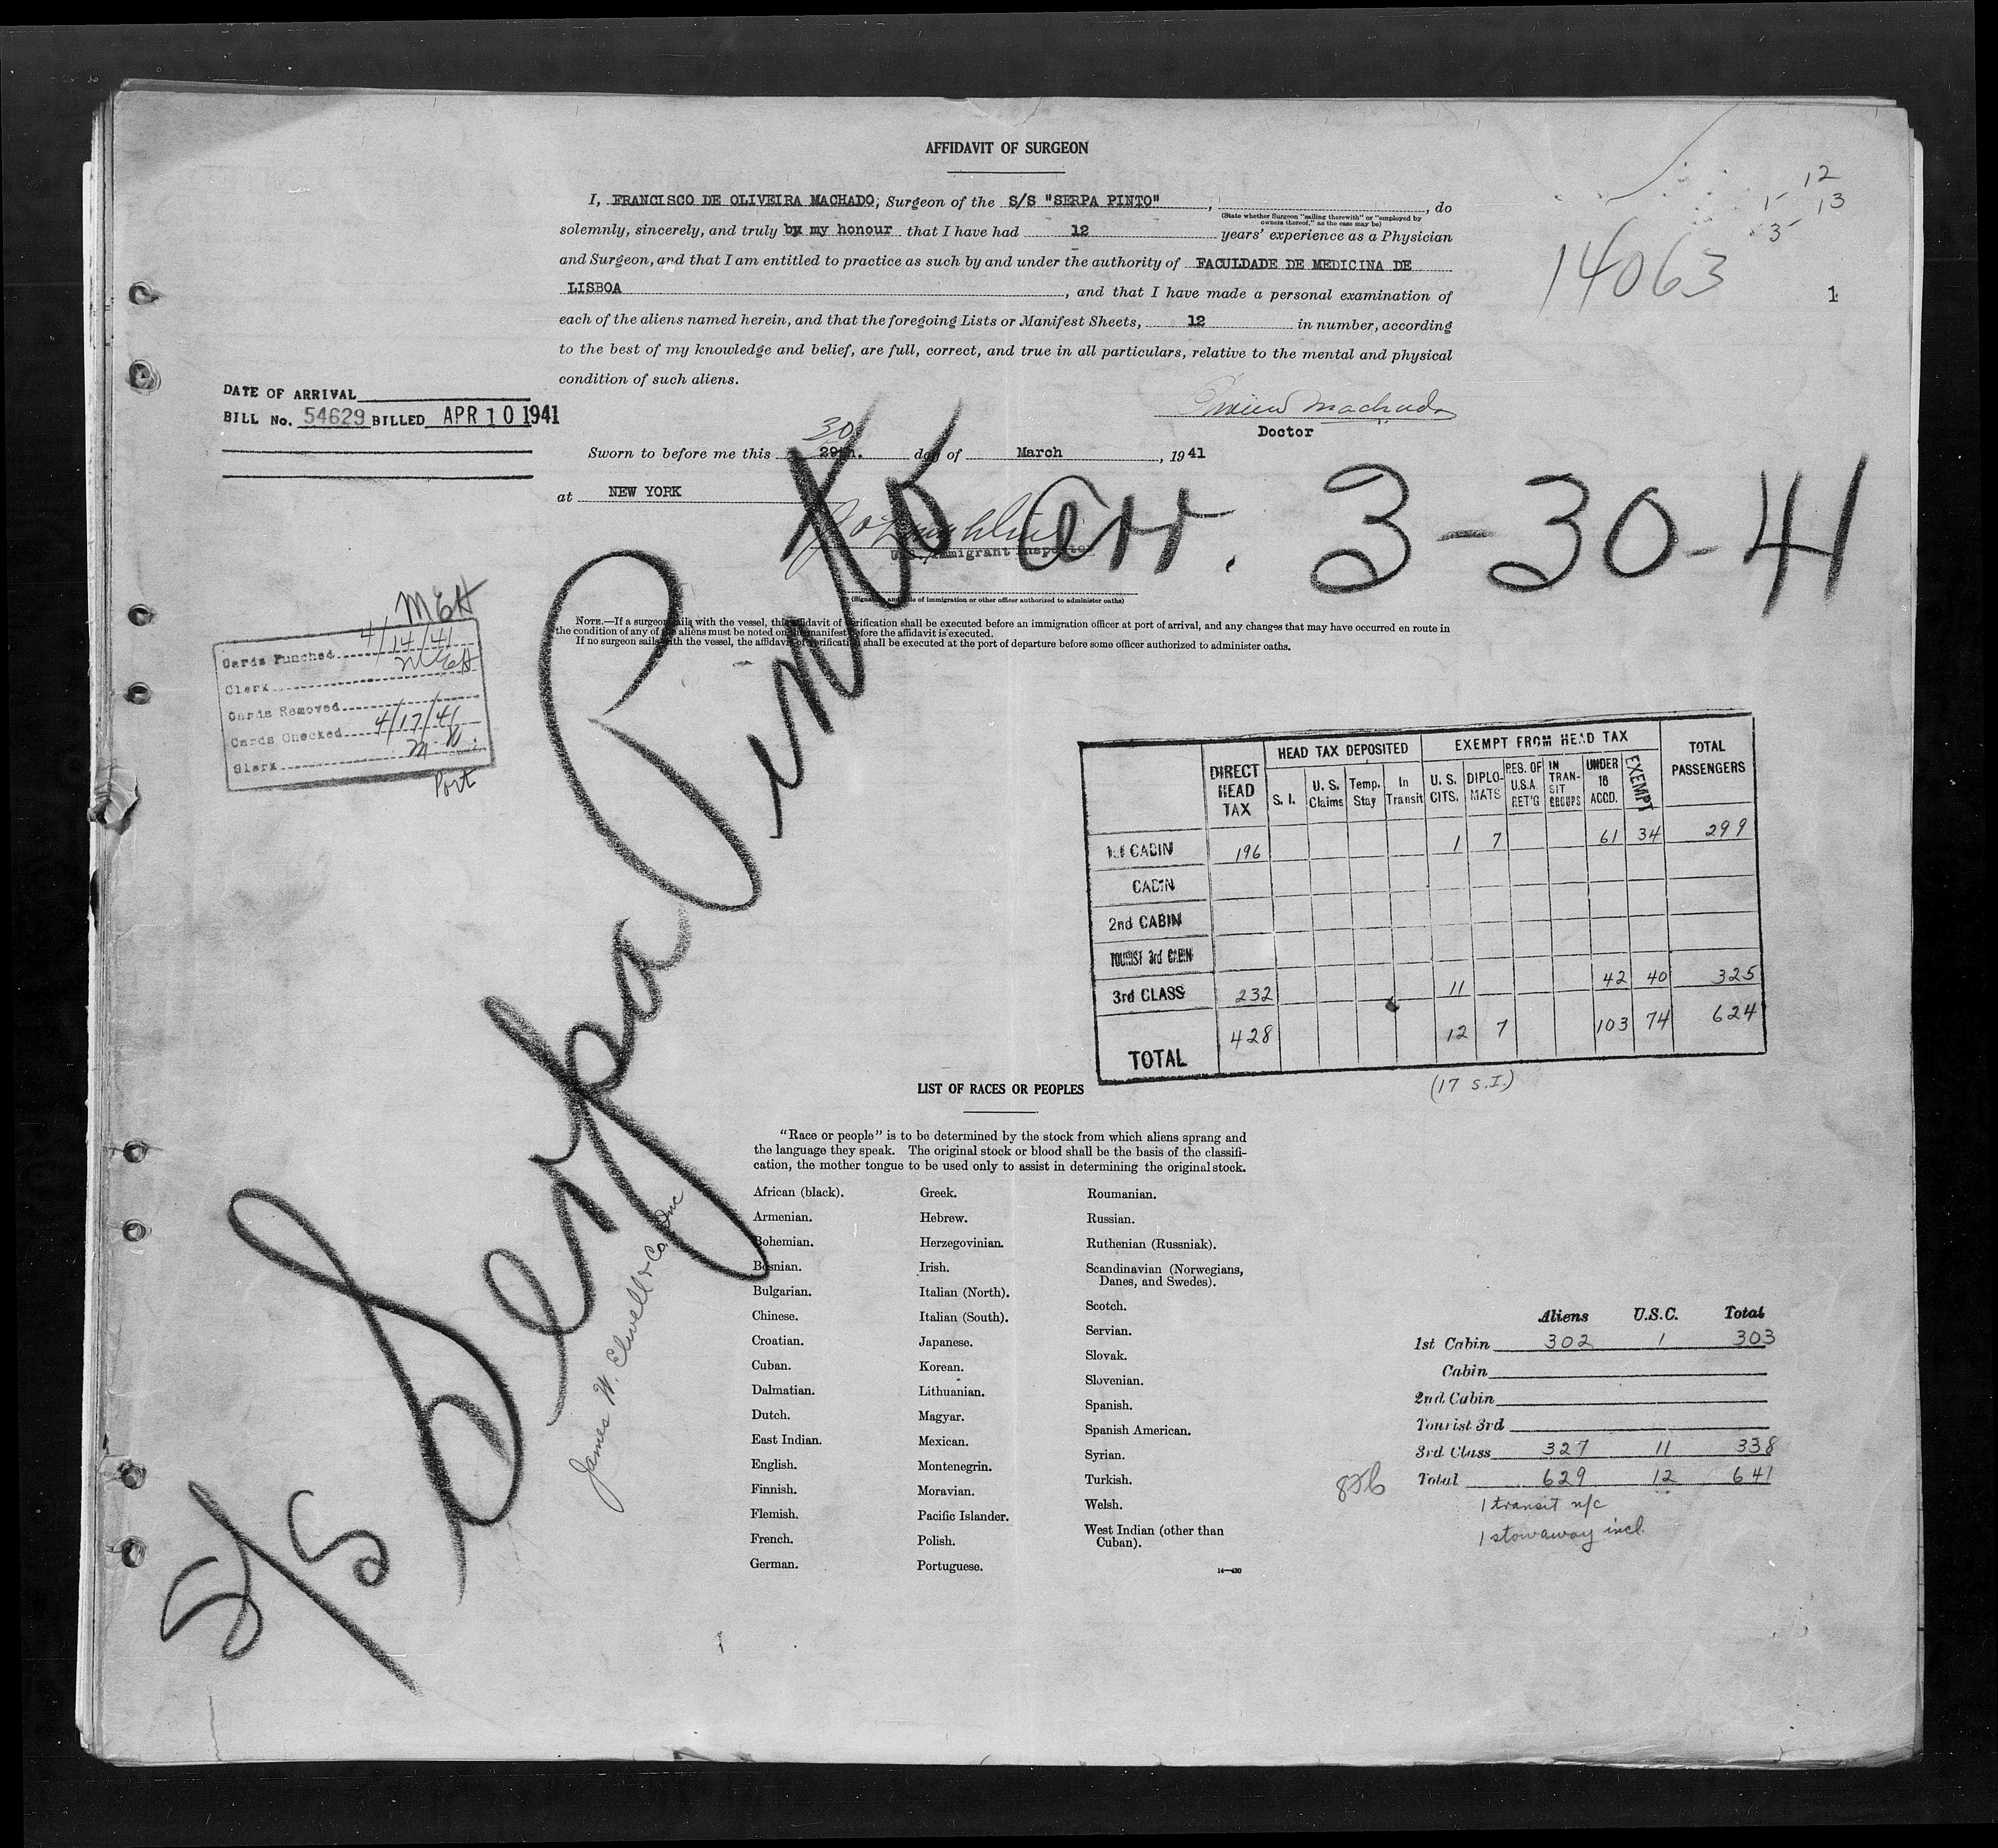 AFFIDAVIT OF SURGEON
I, FRANCISCO DE OLIVEIRA MACHADO, Surgeon of the S/S "SERPA PINTO", , do
(State whether Surgeon "sailing therewith" or "employed by owners thereof," as the case may be)
solemnly, sincerely, and truly by my honour that I have had 12 years' experience as a Physician
and Surgeon, and that I am entitled to practice as such by and under the authority of FACULDADE DE MEDICINA DE
LISBOA, and that I have made a personal examination of
each of the aliens named herein, and that the foregoing Lists or Manifest Sheets, 12 in number, according
to the best of my knowledge and belief, are full, correct, and true in all particulars, relative to the mental and physical
condition of such aliens.
12
13
14063
1
Machado
Doctor
DATE OF ARRIVAL
BILL No. 54629 BILLED APR 10 1941
30
Sworn to before me this 29th. day of March, 1941
at NEW YORK
Immigrant Inspector
(Signature and title of immigration or other officer authorized to administer oaths)
S/S Serpa Pinto arr. 3-30-41
NOTE.—If a surgeon sails with the vessel, this affidavit of verification shall be executed before an immigration officer at port of arrival, and any changes that may have occurred en route in
the condition of any of the aliens must be noted on the manifest before the affidavit is executed.
If no surgeon sails with the vessel, the affidavit of verification shall be executed at the port of departure before some officer authorized to administer oaths.
MEH
Cards Punched 4/14/41
Clerk MEH
Cards Removed
Cards Checked 4/17/41
Clerk
Port
DIRECT HEAD TAX
HEAD TAX DEPOSITED
EXEMPT FROM HEAD TAX
TOTAL PASSENGERS
S. I. U. S. Claims Temp. Stay In Transit U. S. CITS. DIPLOMATS RES. OF U.S.A. RET'G IN TRANSIT GROUPS UNDER 16 ACCD. EXEMPT
1st CABIN 196 1 7 61 34 299
CABIN
2nd CABIN
TOURIST 3rd CABIN
3rd CLASS 232 11 42 40 325
TOTAL 428 12 7 103 74 624
(17 S.I.)
LIST OF RACES OR PEOPLES
"Race or people" is to be determined by the stock from which aliens sprang and
the language they speak. The original stock or blood shall be the basis of the classifi-
cation, the mother tongue to be used only to assist in determining the original stock.
African (black).
Armenian.
Bohemian.
Bosnian.
Bulgarian.
Chinese.
Croatian.
Cuban.
Dalmatian.
Dutch.
East Indian.
English.
Finnish.
Flemish.
French.
German.
Greek.
Hebrew.
Herzegovinian.
Irish.
Italian (North).
Italian (South).
Japanese.
Korean.
Lithuanian.
Magyar.
Mexican.
Montenegrin.
Moravian.
Pacific Islander.
Polish.
Portuguese.
Roumanian.
Russian.
Ruthenian (Russniak).
Scandinavian (Norwegians,
Danes, and Swedes).
Scotch.
Servian.
Slovak.
Slovenian.
Spanish.
Spanish American.
Syrian.
Turkish.
Welsh.
West Indian (other than
Cuban).
14—430
James W. Elwell & Co. Inc
Aliens U.S.C. Total
1st Cabin 302 1 303
Cabin
2nd Cabin
Tourist 3rd
3rd Class 327 11 338
Total 629 12 641
1 transit n/c
1 stowaway incl.